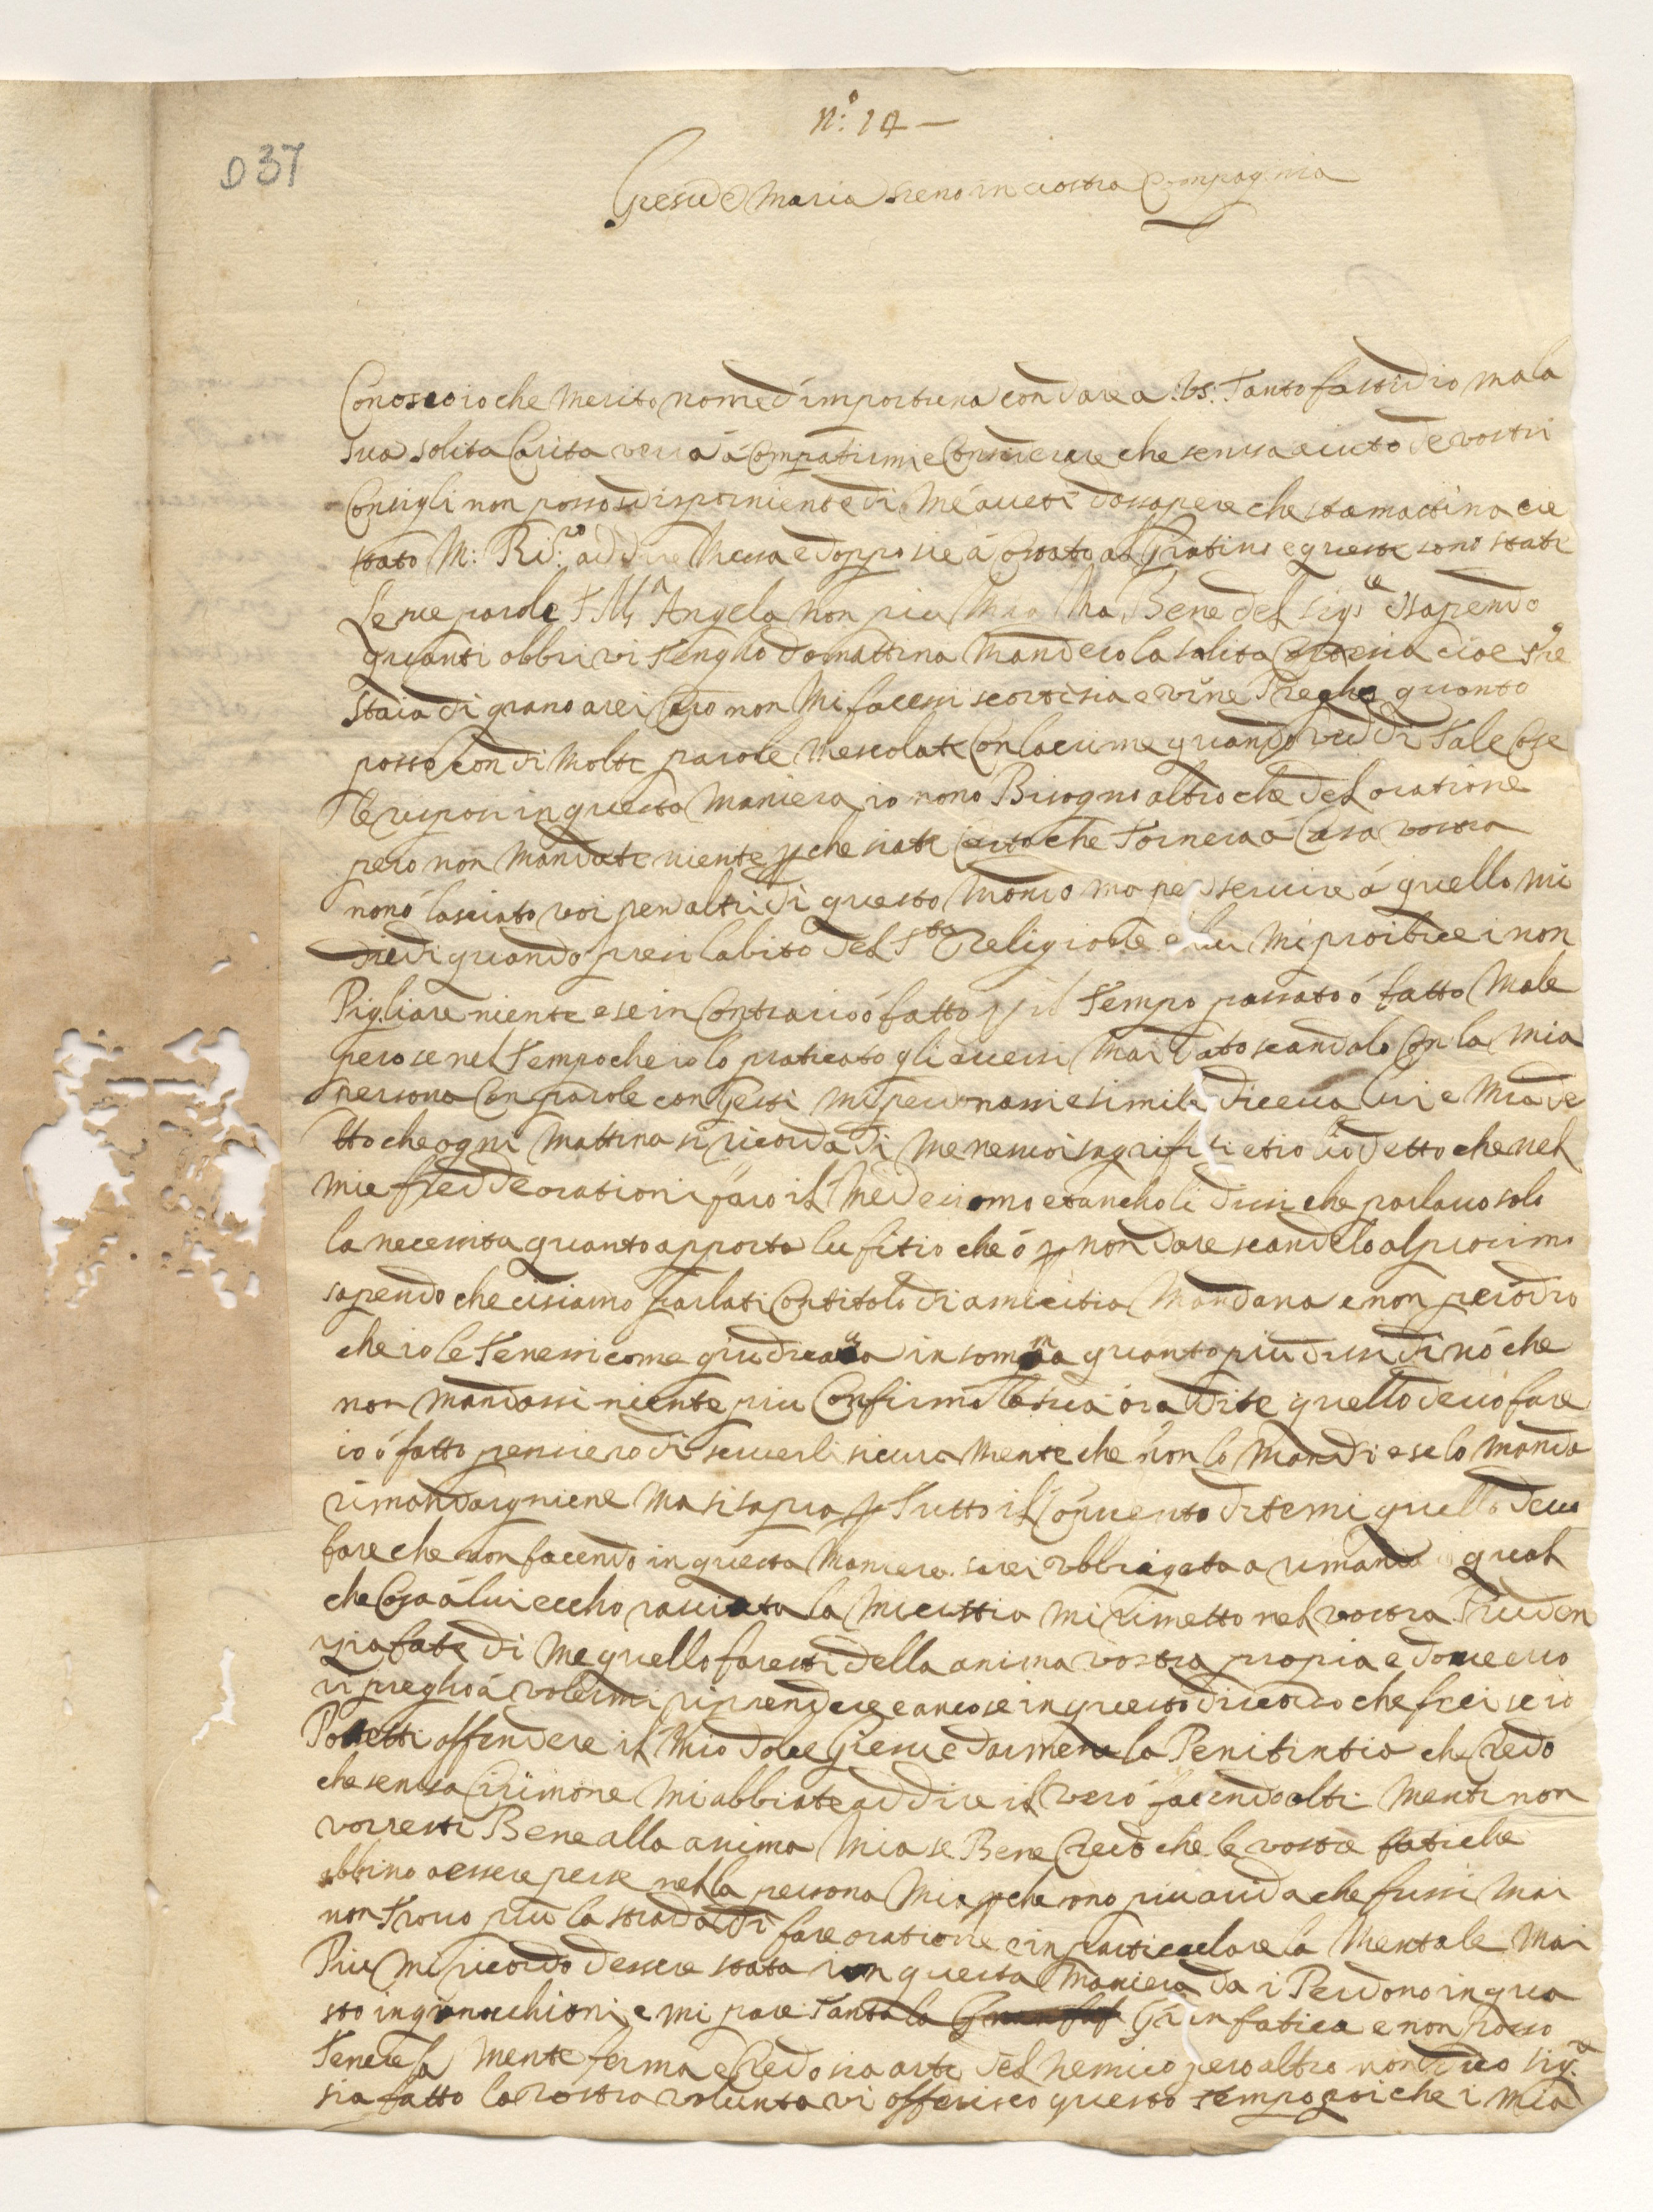 n:º 14 —
037
Giesu e Maria sieno in vostra Compagnia
Conosco io che merito nome d'importuna con dare a :Vs: tanto fastidio ma la
sua solita Carita verra á Compatirmi e Considerare che sensa aiuto de vostri
Consigli non posso disporniente di Me avete dassapere che stamattina cie
stato M: Rid:ro ad dire Messa e doppo sie á Costato al Gratino e queste sono state
Le sue parole S M:a Angela non piu Ma Bene del sig:re e sapendo
quanti obbrivi tengho domattina Mandero la solita cioe tre
staia di grano arei Caro non Mi facessi scortisia e vine Pregho quanto
posso con di Molte parole Mescolate Con lacrime quando veddi tale Cose
le risposi in questa Maniera io nonó Bisogno altro che del oratione
pero non Mandate niente pche siate Certo che tornera á Casa vostra
nonó lasciato voi per altri di questo Mondo ma per servire á quello mi
diedi quando presi labito del Sta Religione e lui Mi proibue i non
Pigliare niente e se in Contrario ó fatto p il tempo passato ó fatto Male
pero se nel tempo che io lo praticato gli avessi Mai dato scandalo Con la Mia
persona Con parole con Gesti Mi perdonassi e simile diceva lui e Mia de
tto che ogni Mattina si ricorda di Me ne suoi sagrifiti et io lió detto che nel
mie fredde orationi faro il Medesimo et ancho li dissi che parlavo solo
la necessita quanto apporta lu fitio che ó p non dare scandelo al prosimo
sapendo che ci siamo parlati Con titolo di amicitia Mondana e non per ódio
che io le tenessi come giudicava in somma quanto piu dissi di nó che
non mandassi niente piu Confirmó la sua óra dite quello devo fare
io ó fatto pensiero di scriverli sicura Mente che non lo Mandi e se lo Manda
rimandargniene Ma si sapra p tutto il Convento ditemi quello devo
fare che non facendo in questa Maniera sarei obbrigata a rimandar qual
che Cosa á lui eccho racciata la Micistia mi rimetto nel vostra Pruden
zia fate di Me quello faresti della anima vostra propia e dove erro
vi pregho á volermi riprendere e anco se in questo discorso che frei se io
Potessi offendere il Mio dolce Giesu e darmene la Penitintia che Credo
che sensa Cirimone Mi abbiate ad dire il vero facendo altri Menti non
vorresti Bene alla anima Mia se Bene Credo che le vostre fatiche
abbino a essere perse nella persona Mia pche sono piu arida che fussi Mai
non trovo piu la strada di fare oratione e in particulare la Mentale Mai
Piu Mi ricordo dessere stata in questa Maniera da i Perdono in qua
sto in ginocchioni e Mi pare tanta la Gran fatica e non posso
tenere la Mente ferma e Credo sia arte del Nemico pero altro non dico sig:e
sia fatto la vostra volunta vi offerisco questo tempo poi che i Mia